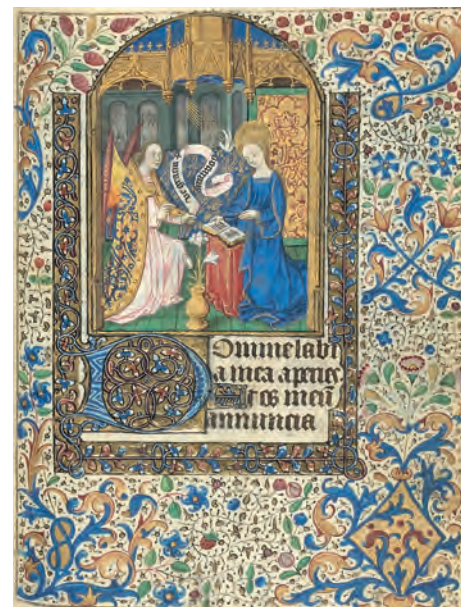 Domine labi
a mea aperies
et os meū
annuncia